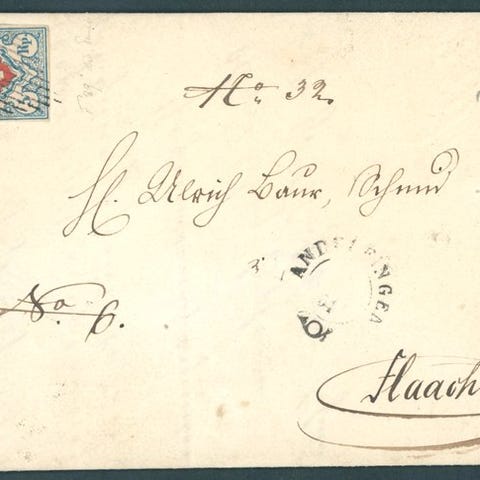 Rp.
No. 32.
H. Ulrich Baur, Schmid
ANDELFINGEN
No. 6.
Flaach